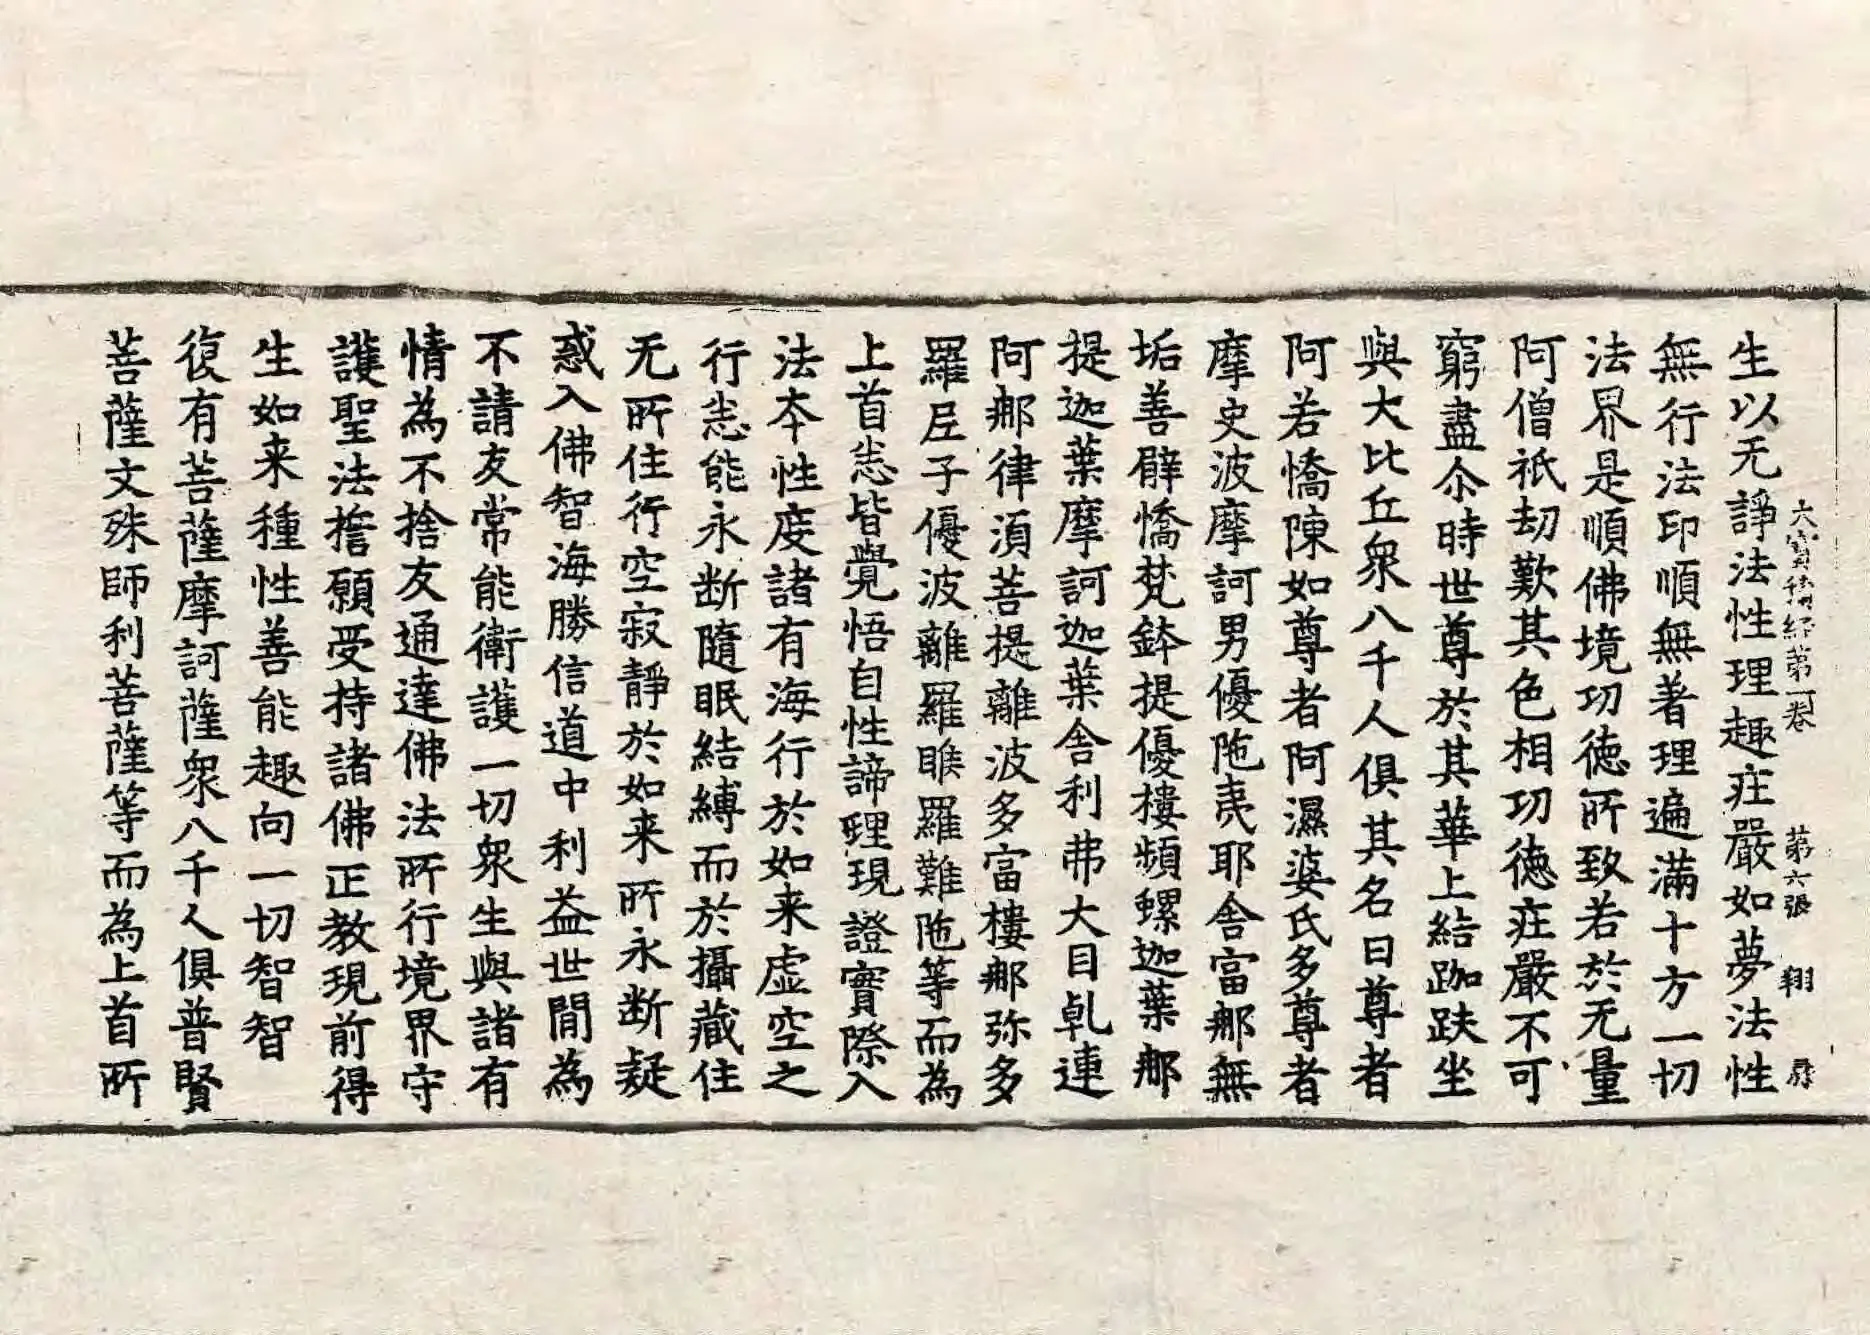 大寶積經第一卷 第六張 翔 𠬶
生以无諍法性理趣疘嚴如夢法性
無行法印順無著理遍滿十方一切
法界是順佛境功徳所致若於无量
阿僧祇劫歎其色相功徳疘嚴不可
窮盡尒時世尊於其華上結跏趺坐
與大比丘衆八千人俱其名曰尊者
阿若憍陳如尊者阿濕婆氏多尊者
摩史波摩訶男優陁夷耶舍富𨚗無
垢善臂憍梵鉢提優樓頻螺迦葉𨚗
提迦葉摩訶迦葉舍利弗大目乹連
阿𨚗律湏菩提離波多富樓𨚗弥多
羅𡰱子優波離羅睺羅難陁等而為
上首𢘻皆覺悟自性諦理現證實際入
法夲性度諸有海行於如来虚空之
行𢘻能永断隨眠結縛而於攝藏住
无所住行空寂靜於如来所永断疑
惑入佛智海勝信道中利益世間為
不請友常能衛護一切衆生與諸有
情為不捨友通達佛法所行境界守
護聖法誓願受持諸佛正教現前得
生如来種性善能趣向一切智智
復有菩薩摩訶薩衆八千人俱普賢
菩薩文殊師利菩薩等而為上首所